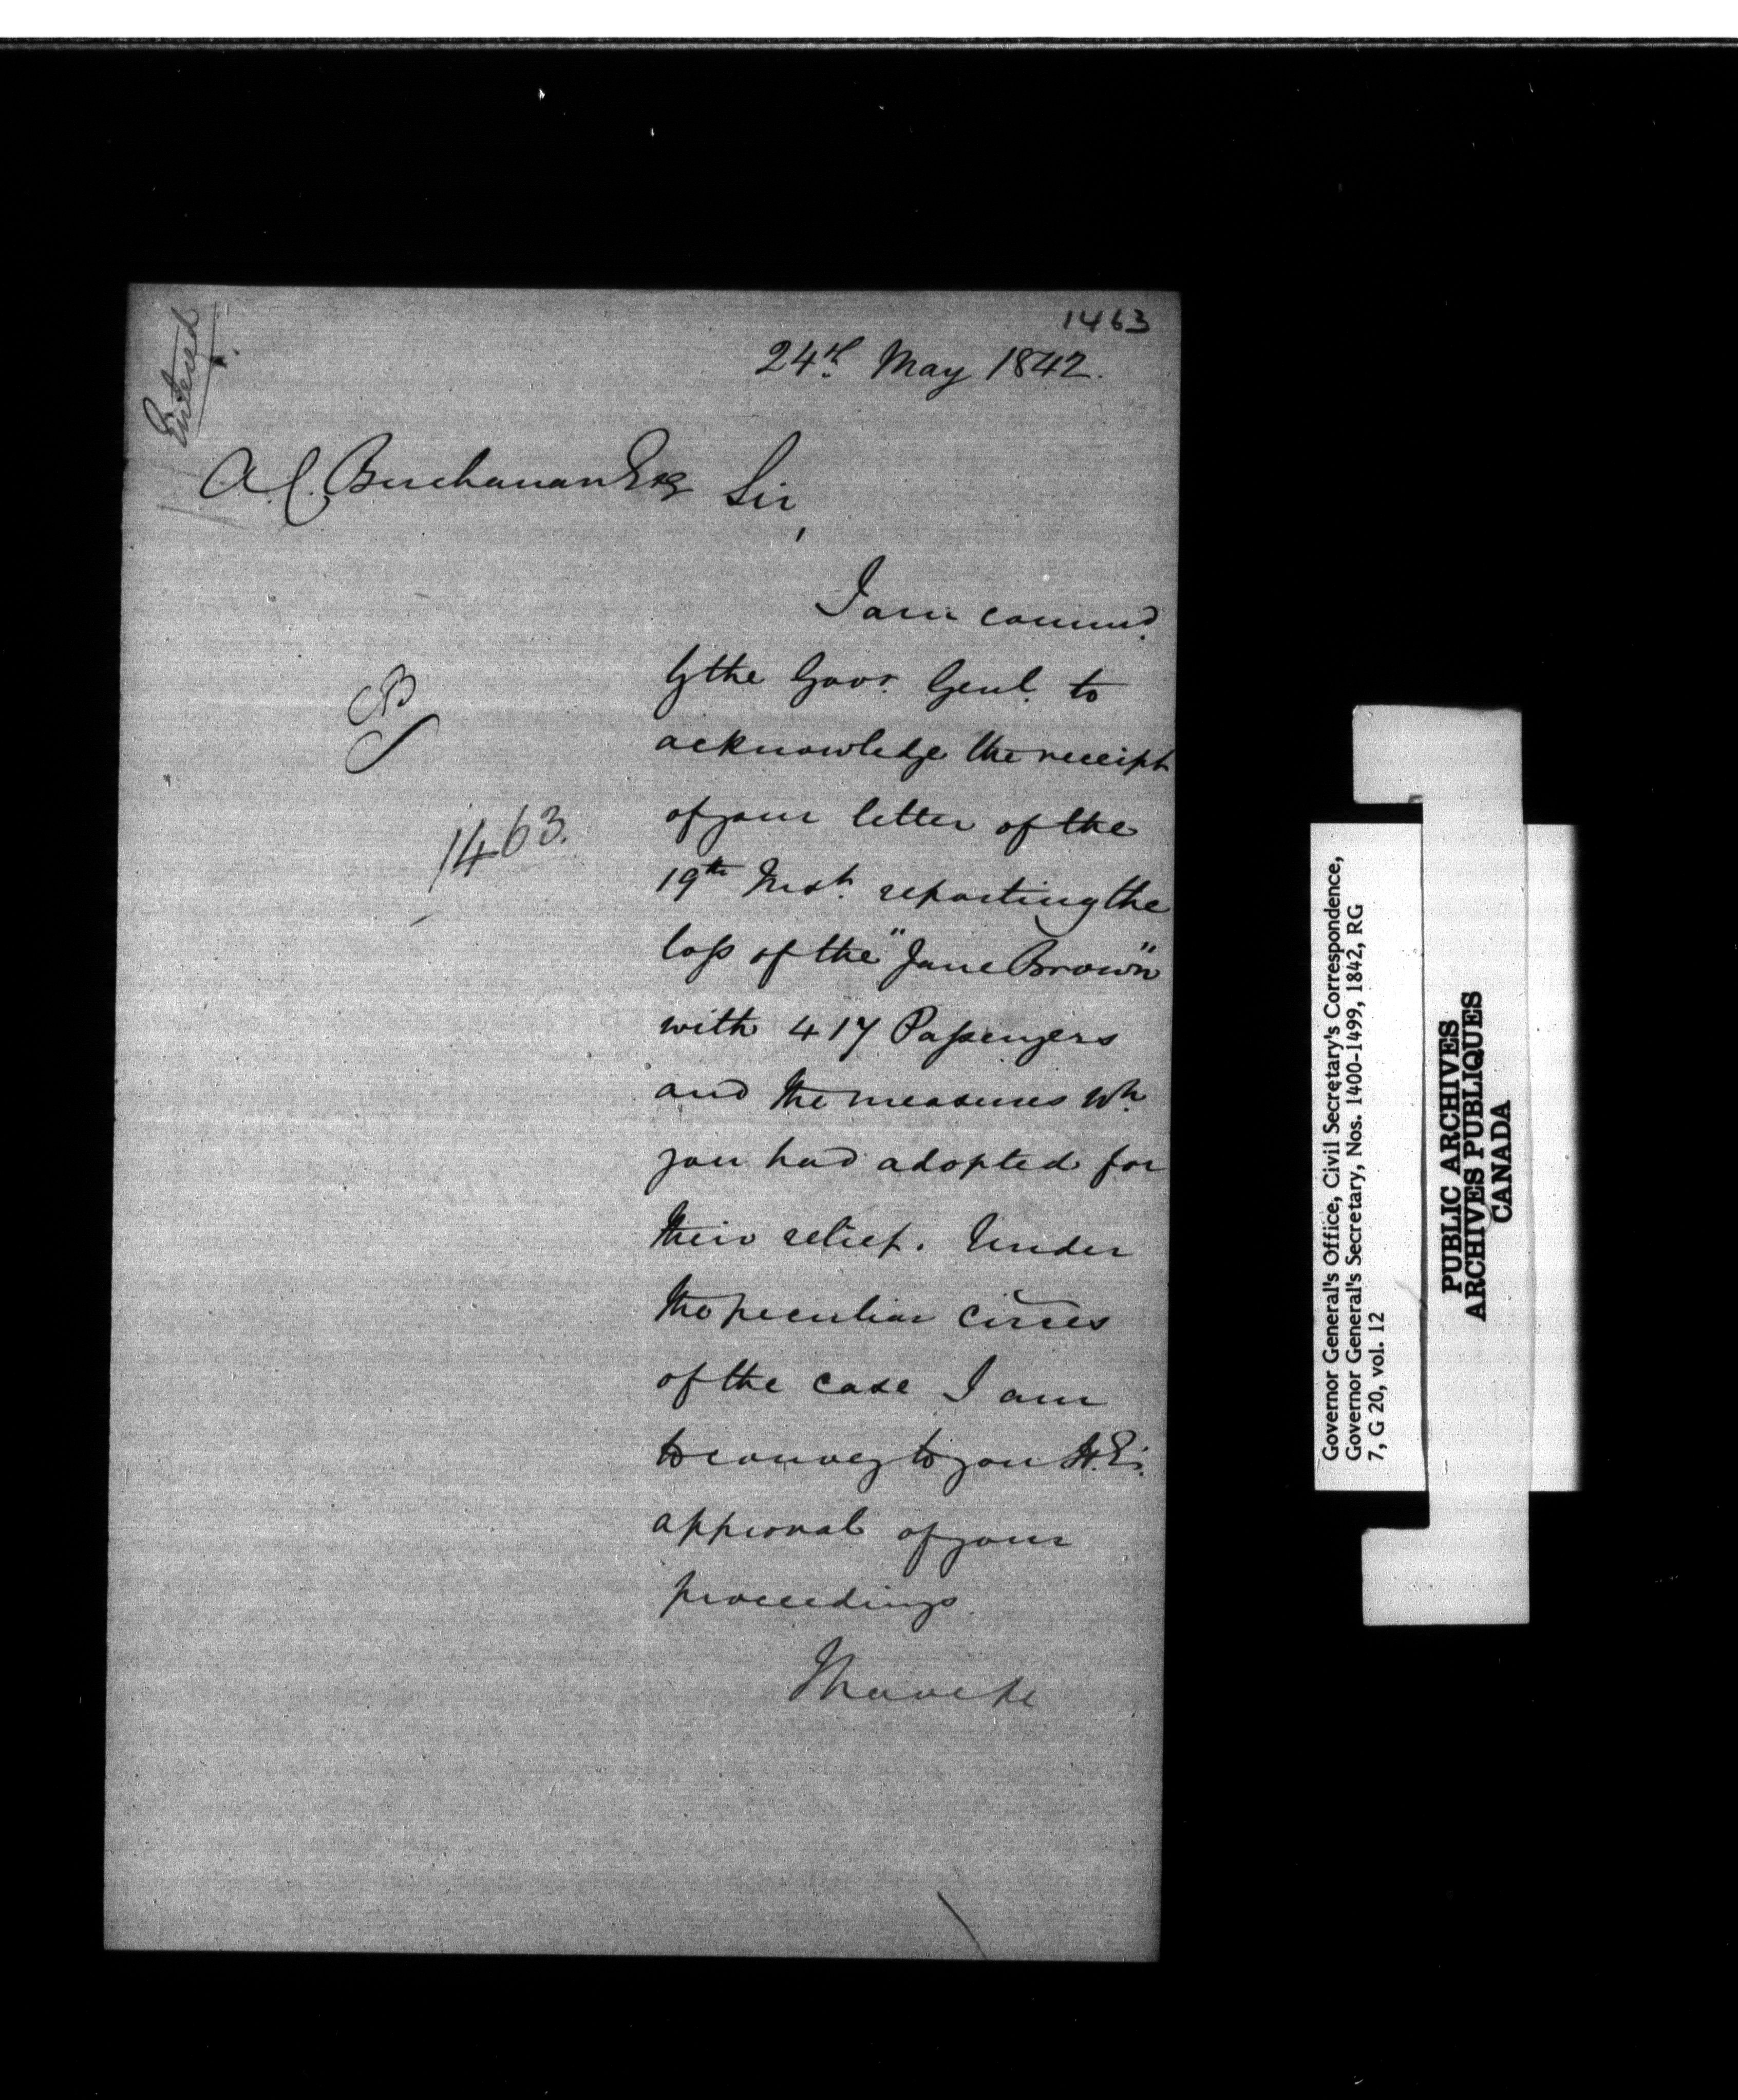 Entered
1463
24th May 1842.
A. C. Buchanan Esq Sir,
I am commd.
by the Govr. Genl. to
acknowledge the receipt
of your letter of the
19th Inst. reporting the
loss of the "Jane Brown"
with 417 Passengers
and the measures wh.
you had adopted for
their relief. Under
the peculiar Circes
of the case I am
to convey to you H.E.'s
approval of your
proceedings.
I have &c
1463.
Governor General's Office, Civil Secretary's Correspondence,
Governor General's Secretary, Nos. 1400-1499, 1842, RG
7, G 20, vol. 12
PUBLIC ARCHIVES
ARCHIVES PUBLIQUES
CANADA